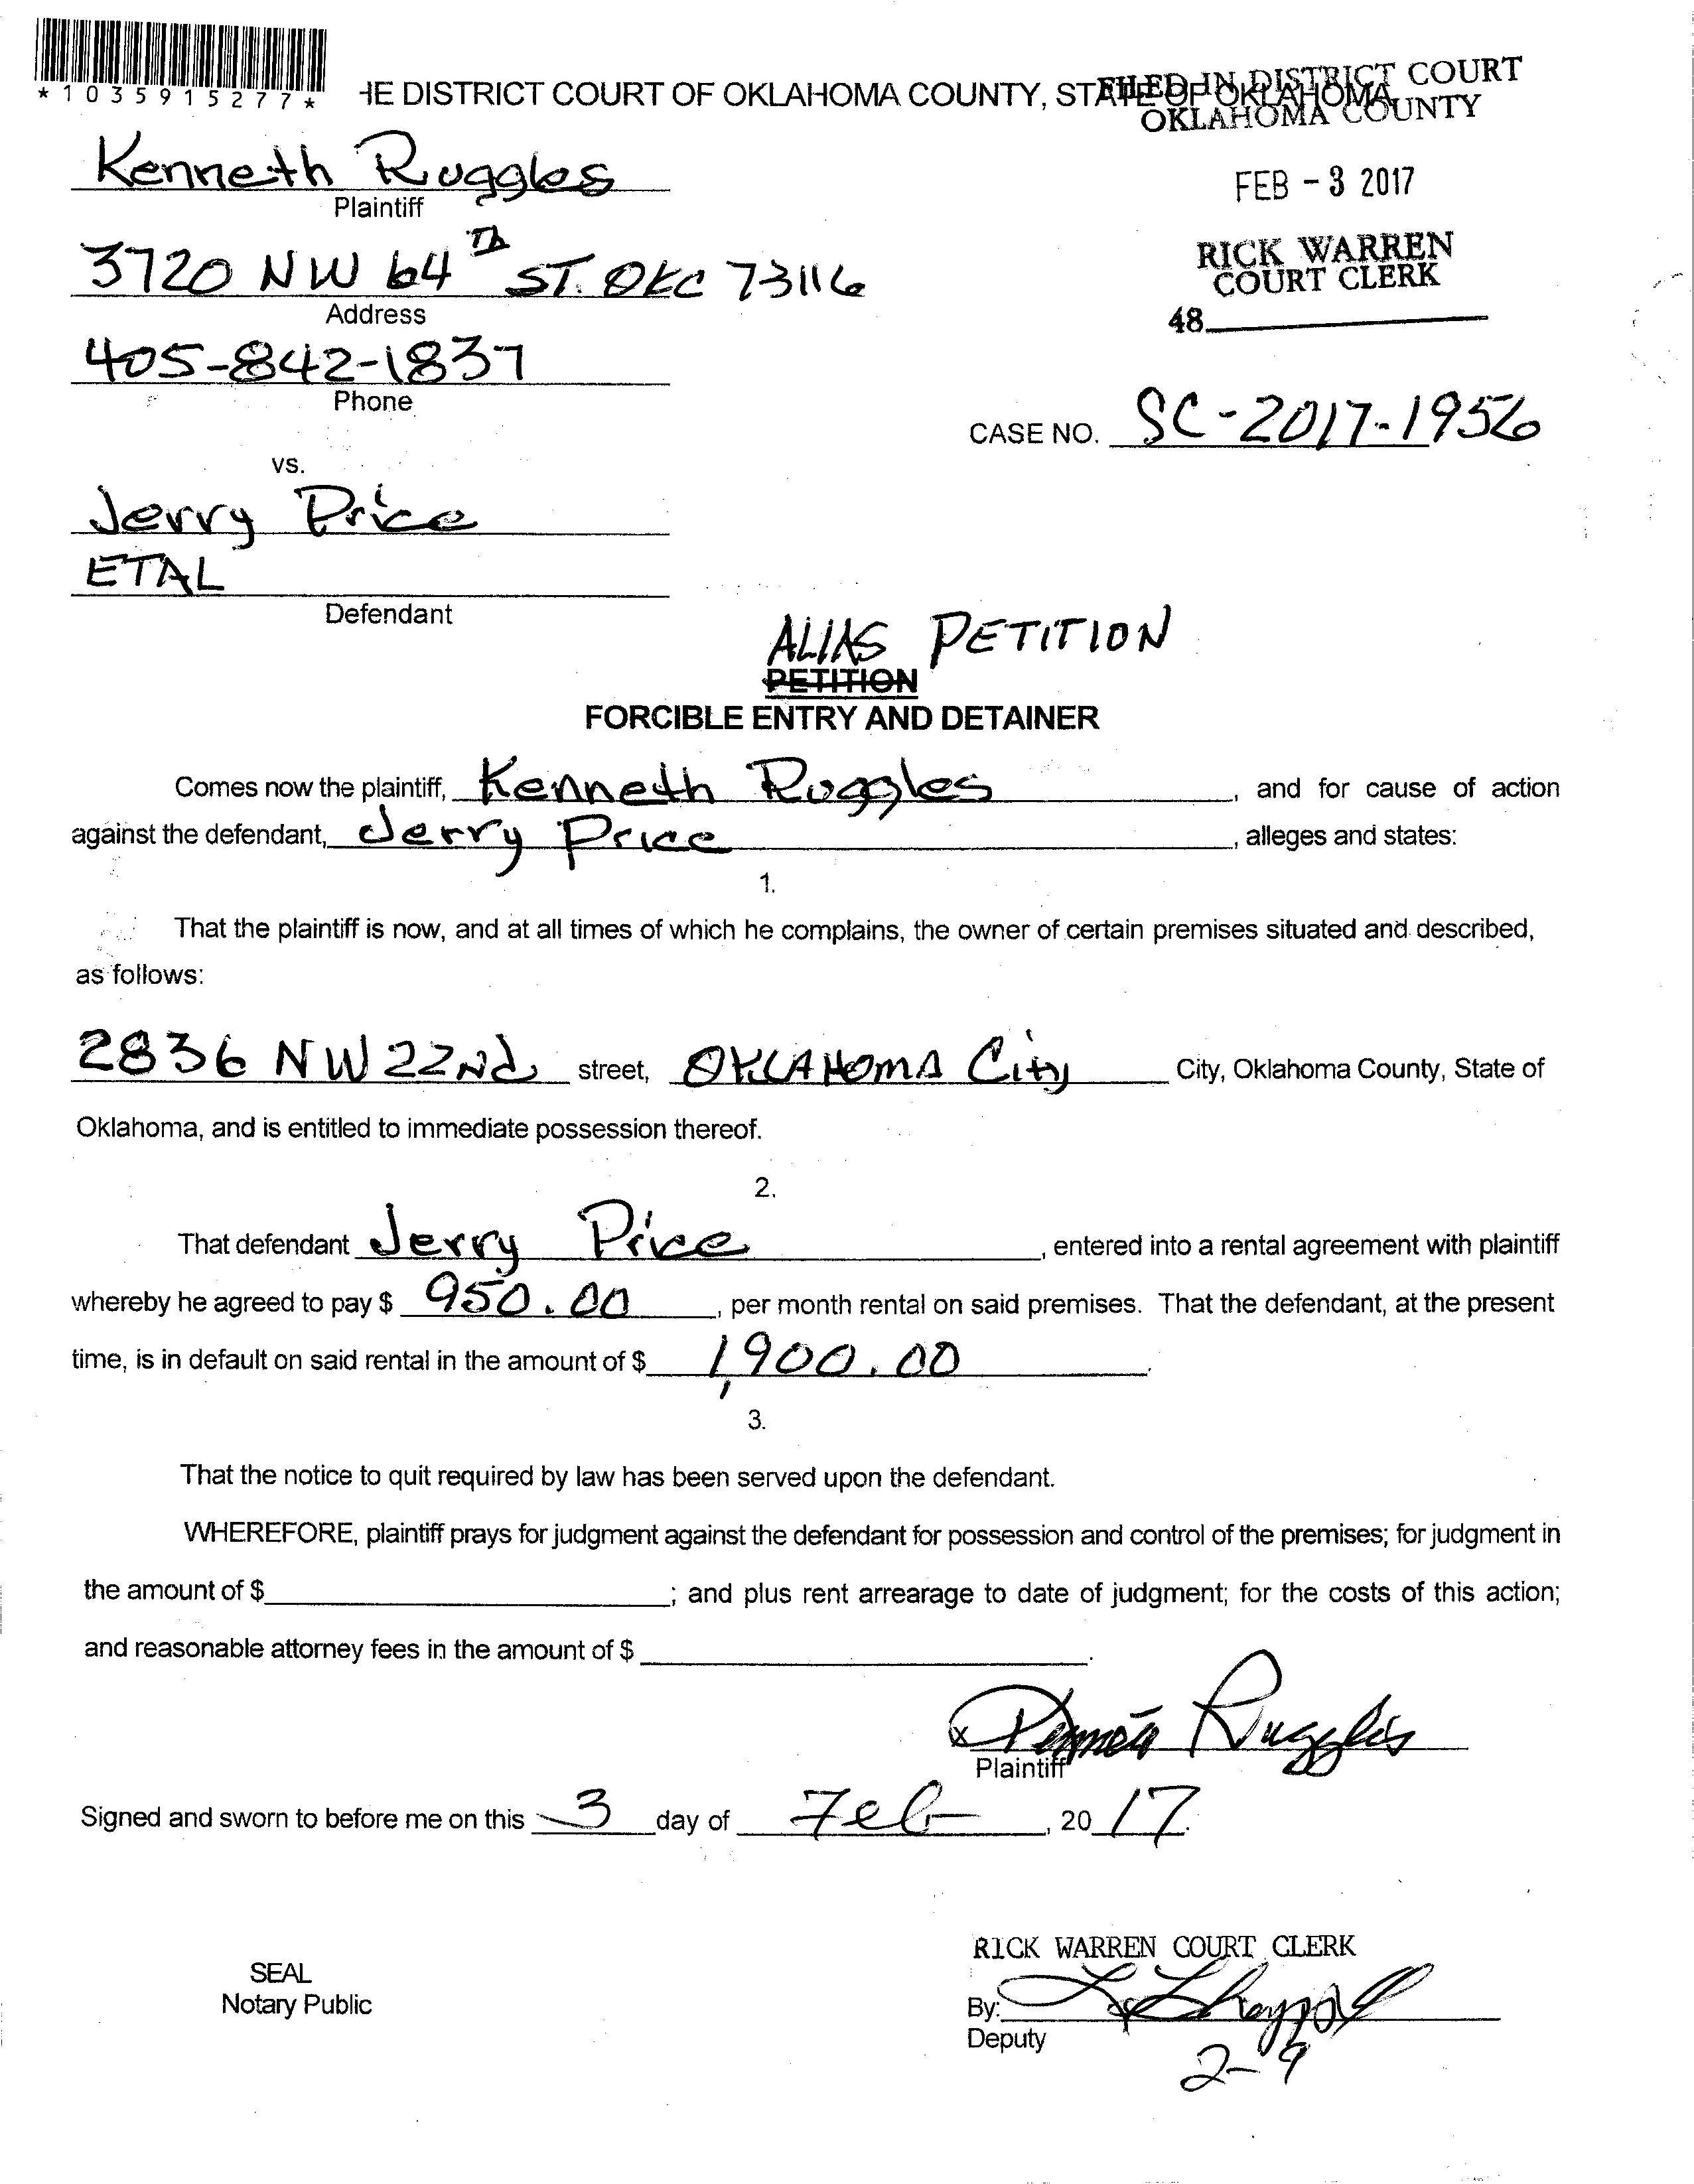 *1035915277*
HE DISTRICT COURT OF OKLAHOMA COUNTY, STATE OF OKLAHOMA
FILED IN DISTRICT COURT
OKLAHOMA COUNTY
Kenneth Ruggles
Plaintiff
FEB - 3 2017
3720 NW 64th ST. OKC 73116
Address
RICK WARREN
COURT CLERK
48
405-842-1837
Phone
CASE NO. SC-2017-1956
vs.
Jerry Price
ETAL
Defendant
ALIAS PETITION
PETITION
FORCIBLE ENTRY AND DETAINER
Comes now the plaintiff, Kenneth Ruggles, and for cause of action
against the defendant, Jerry Price, alleges and states:
1.
That the plaintiff is now, and at all times of which he complains, the owner of certain premises situated and described,
as follows:
2836 NW 22Nd street, OKLAHOMA City City, Oklahoma County, State of
Oklahoma, and is entitled to immediate possession thereof.
2.
That defendant Jerry Price, entered into a rental agreement with plaintiff
whereby he agreed to pay $ 950.00, per month rental on said premises. That the defendant, at the present
time, is in default on said rental in the amount of $ 1,900.00.
3.
That the notice to quit required by law has been served upon the defendant.
WHEREFORE, plaintiff prays for judgment against the defendant for possession and control of the premises; for judgment in
the amount of $; and plus rent arrearage to date of judgment; for the costs of this action;
and reasonable attorney fees in the amount of $.
x Kenneth Ruggles
Plaintiff
Signed and sworn to before me on this 3 day of Feb, 2017.
RICK WARREN COURT CLERK
SEAL
Notary Public
By:
Deputy
2-9